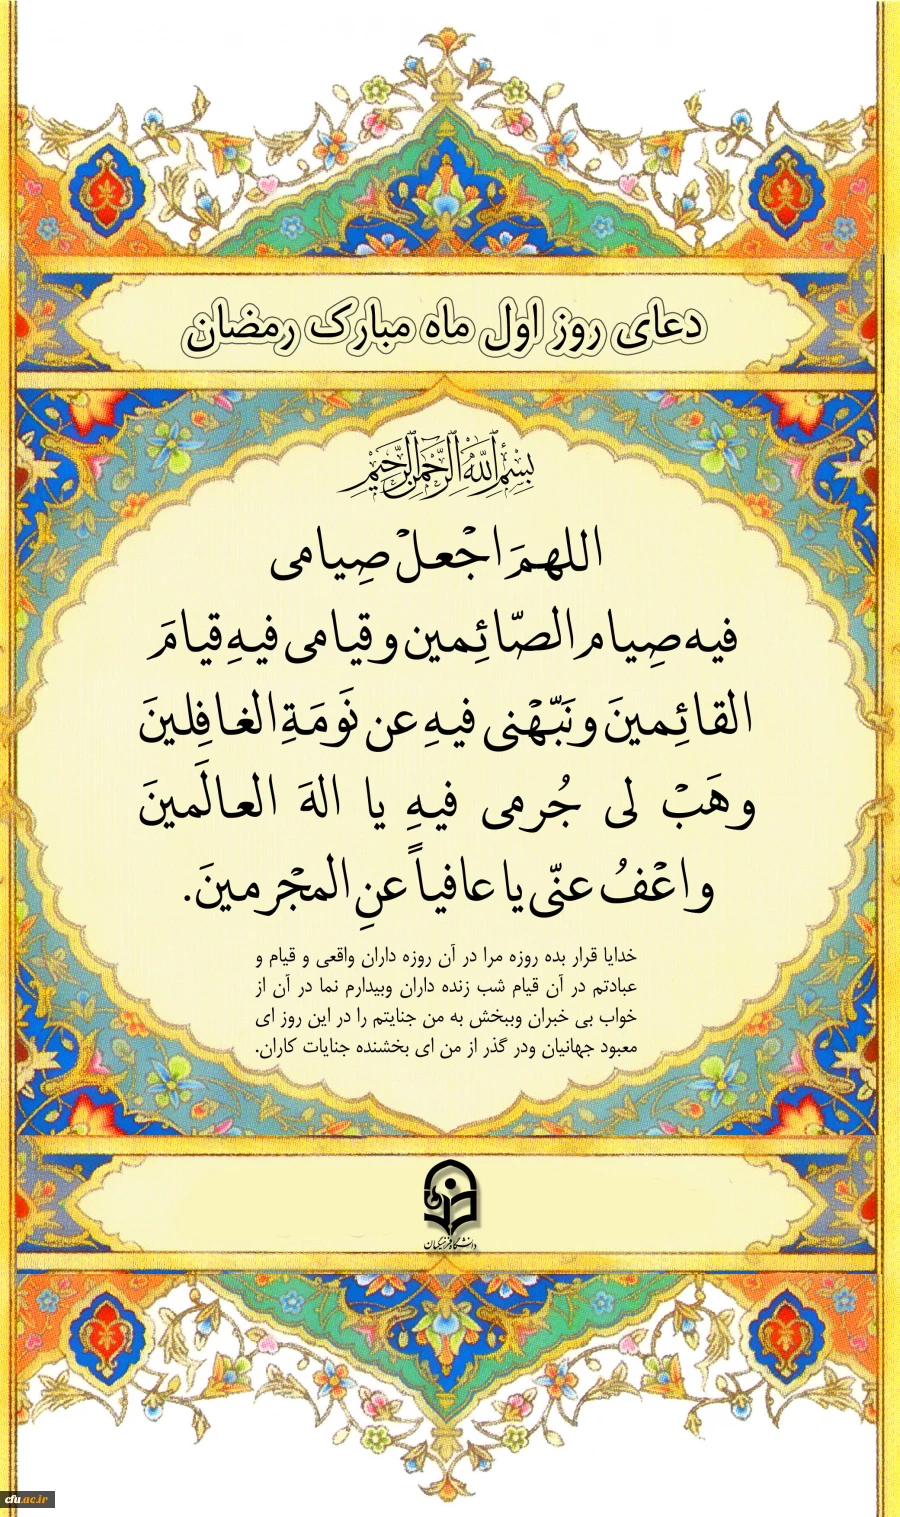 دعای روز اول ماه مبارک رمضان
بِسْمِ اللَّهِ الرَّحْمَٰنِ الرَّحِيمِ
اللهمَ اجْعلْ صِیامی
فیه صِیام الصّائِمین و قیامی فیهِ قیامَ
القائِمینَ ونَبّهْنی فیهِ عن نَومَةِ الغافِلینَ
وهَبْ لی جُرمی فیهِ یا الهَ العالَمینَ
واعْفُ عنّی یا عافیاً عنِ المجْرمینَ.
خدایا قرار بده روزه مرا در آن روزه داران واقعی و قیام و
عبادتم در آن قیام شب زنده داران وبیدارم نما در آن از
خواب بی خبران وببخش به من جنایتم را در این روز ای
معبود جهانیان ودر گذر از من ای بخشنده جنایات کاران.
دانشگاه فرهنگیان
cfu.ac.ir